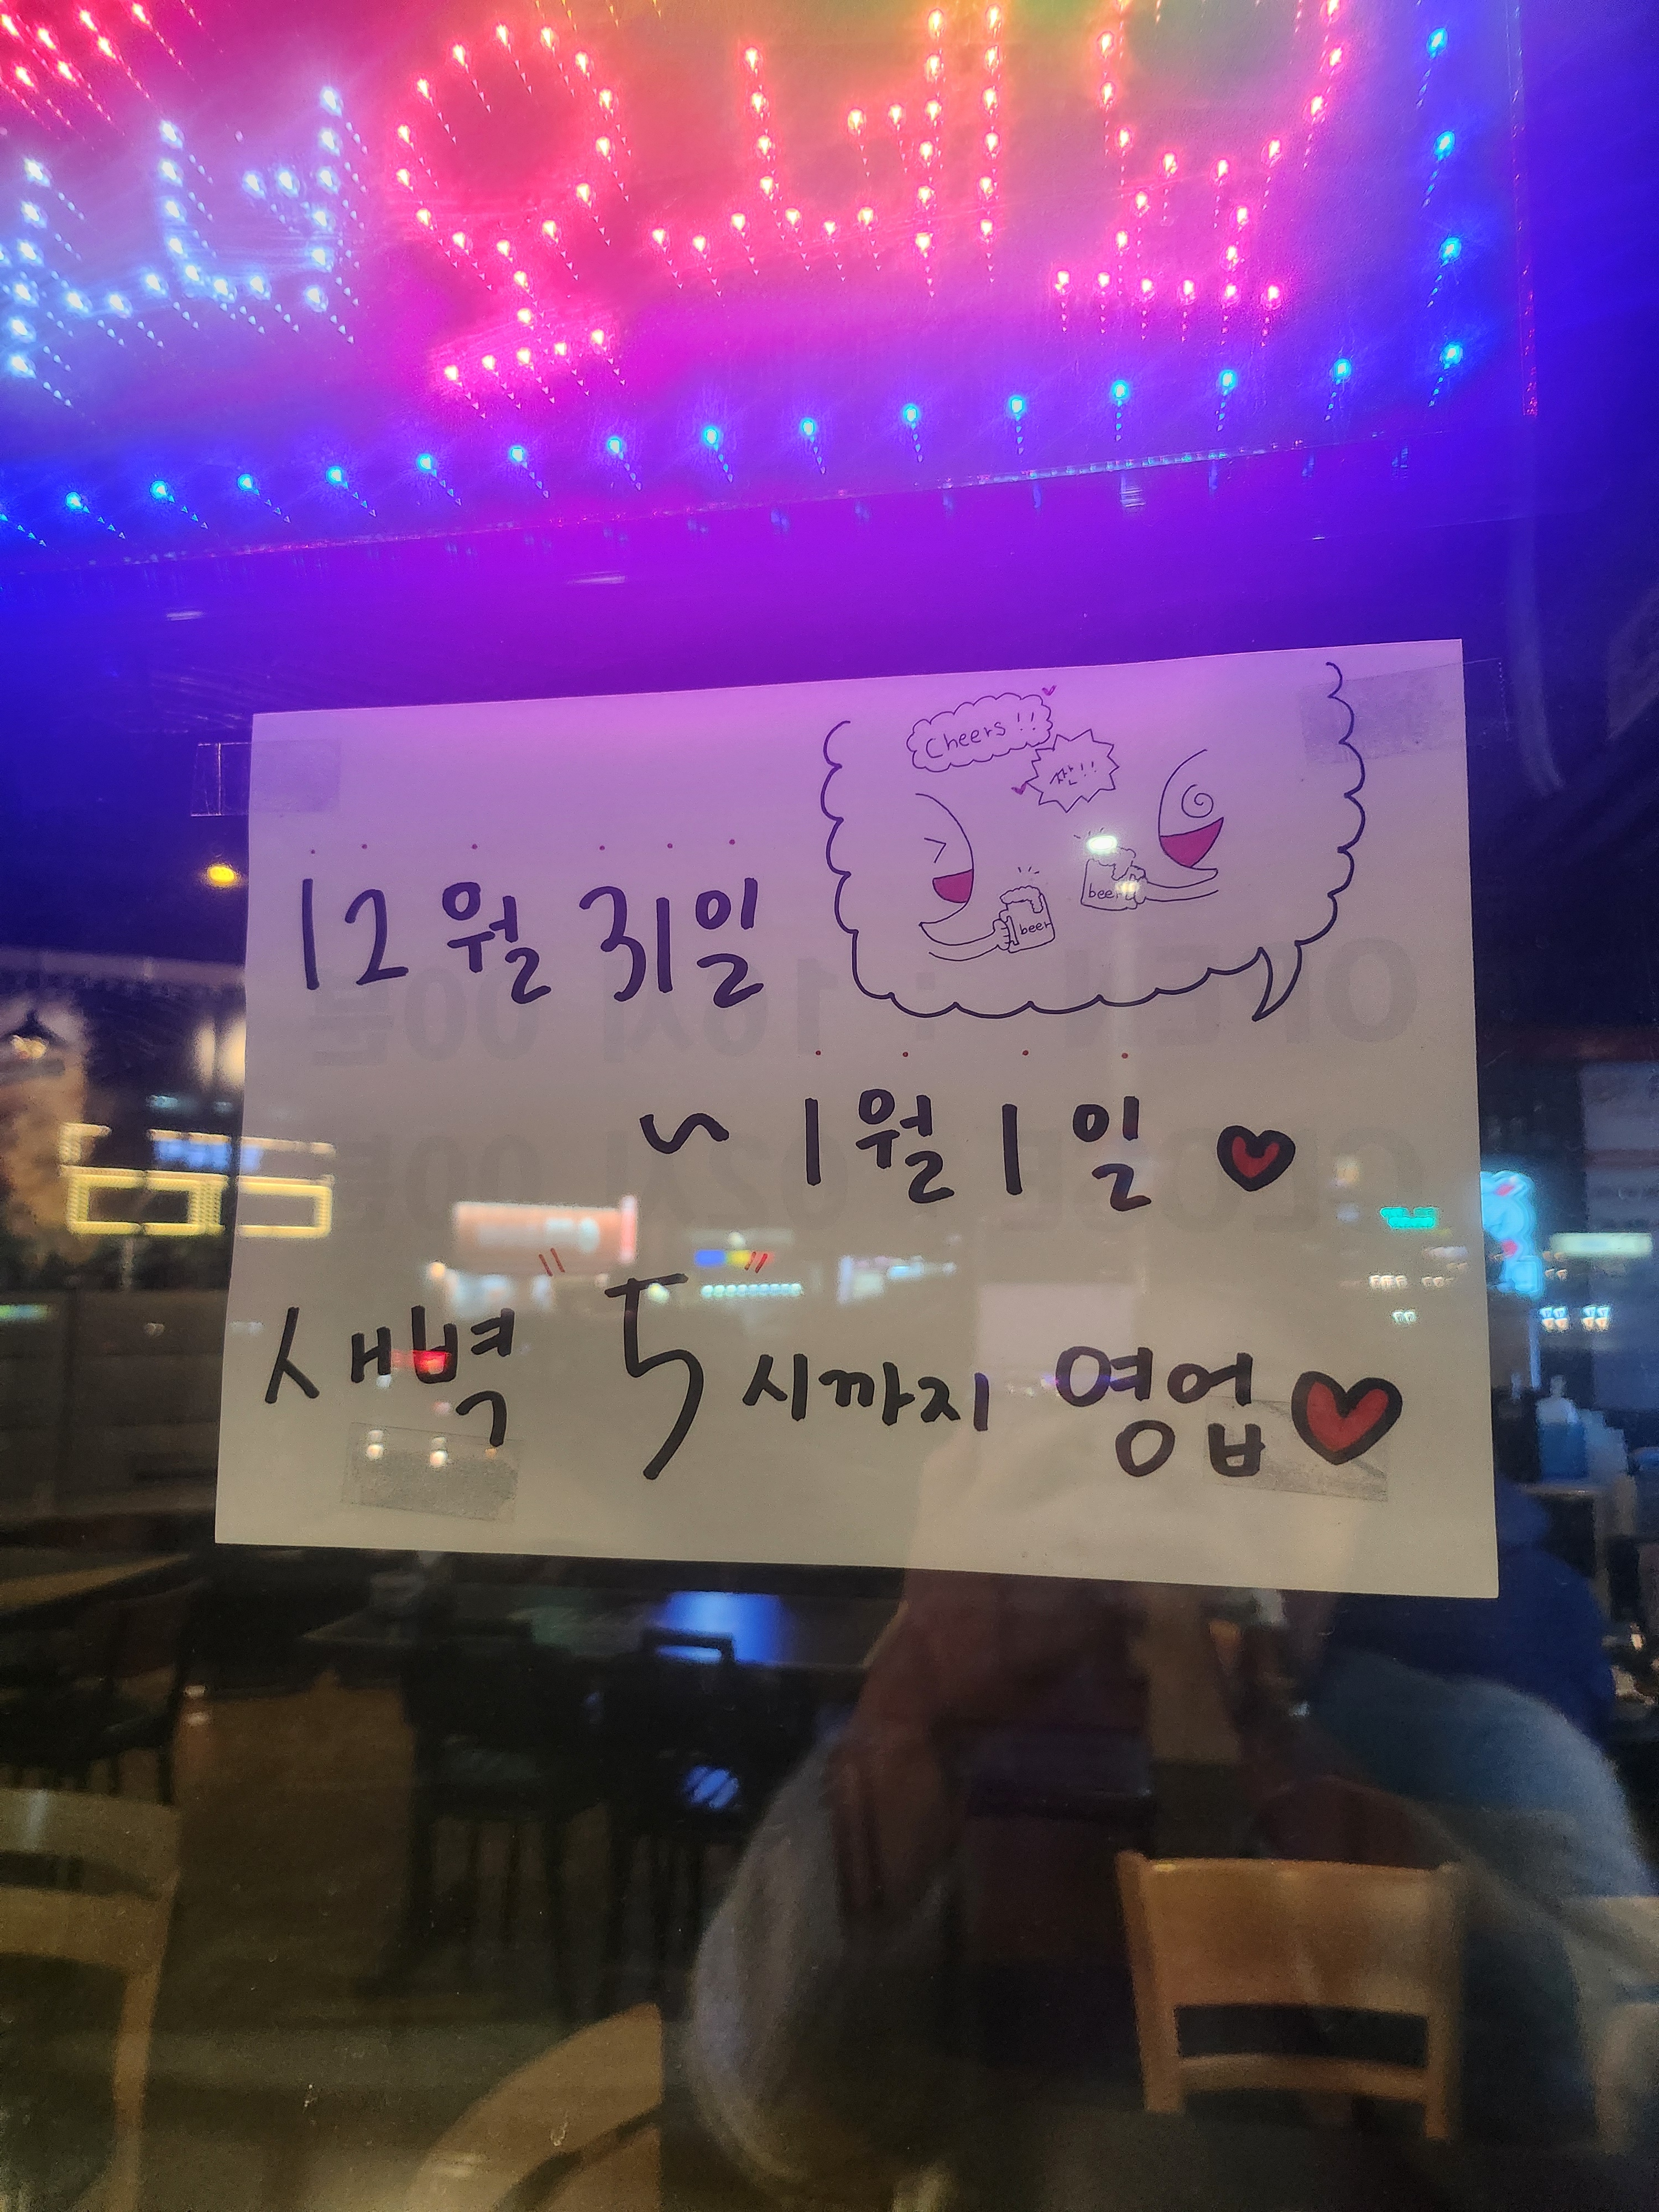 Cheers!!
짠!!
beer
beer
12월 31일
~ 1월 1일
새벽 5시까지 영업